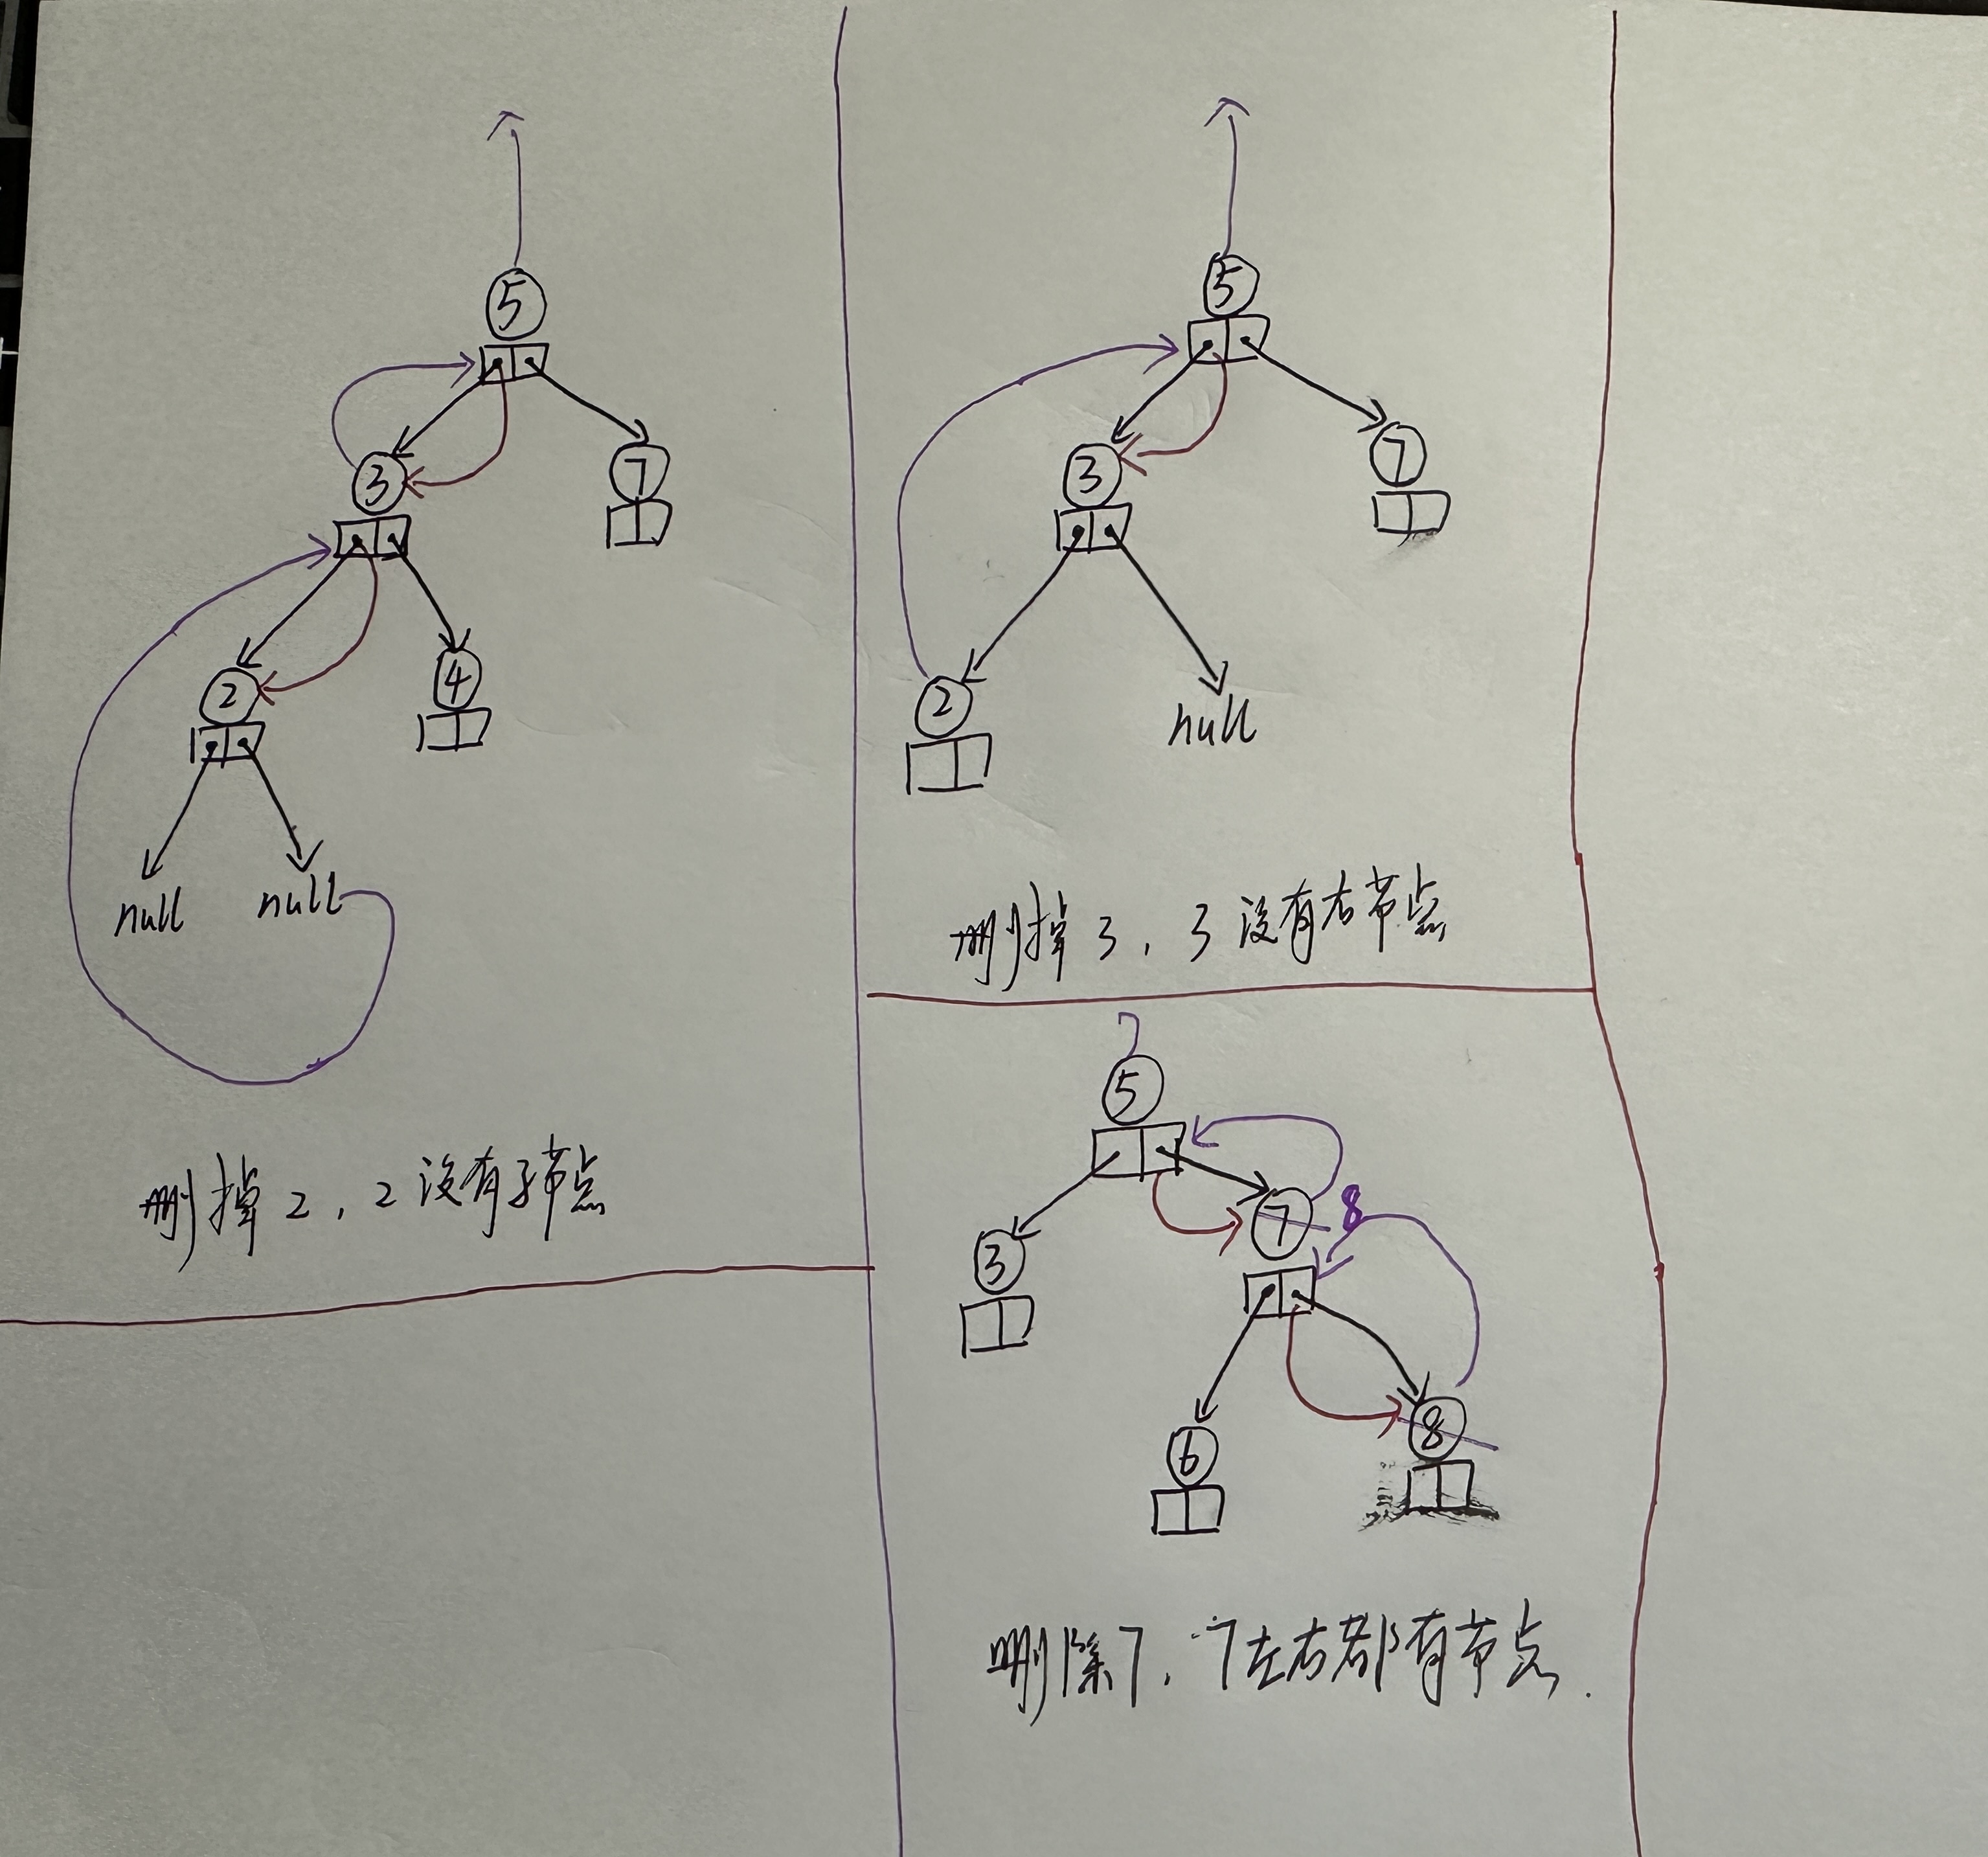 5
3
7
2
4
null null
删掉2，2没有子节点
5
3
7
2
null
删掉3，3没有右节点
5
7 8
3
6
8
删除7，7左右都有节点.